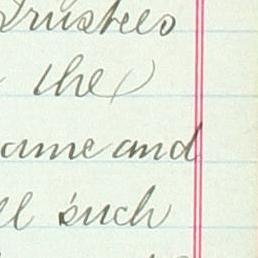 Trustees
the
ame and
ll such